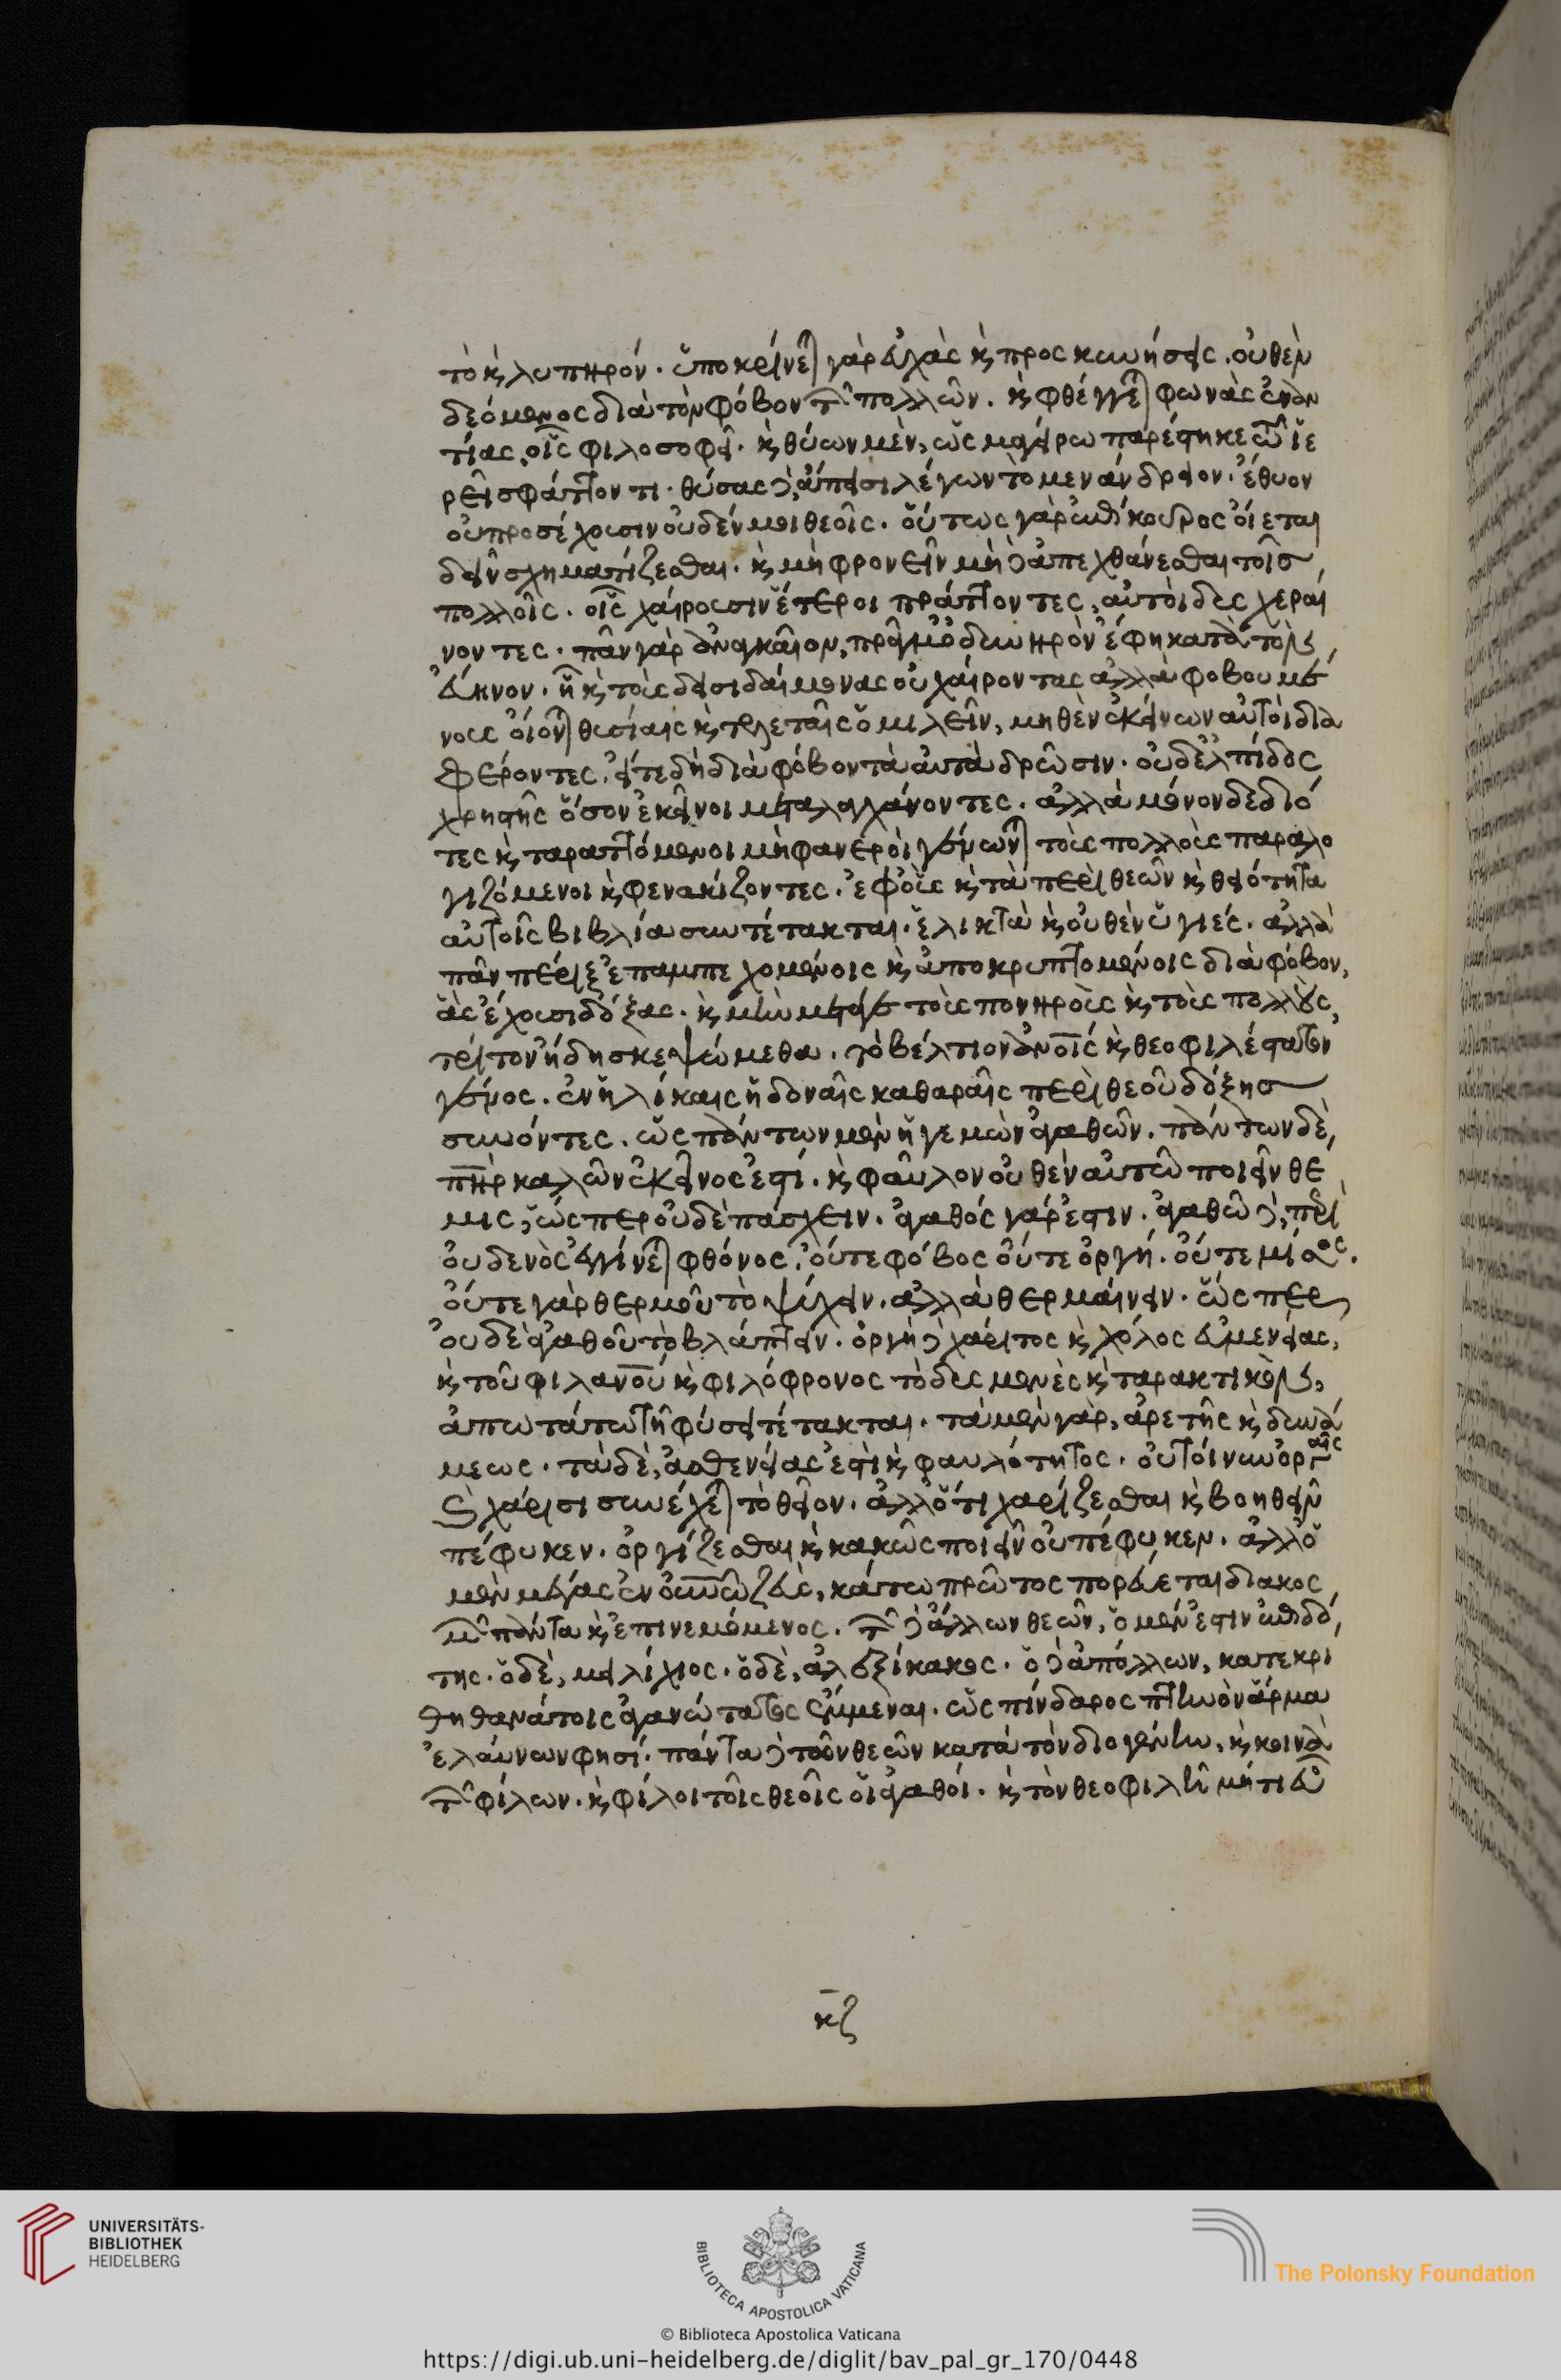 τὸ κ̀ λυπηρόν. ὑποκρίνεται γὰρ εὐχὰς κ̀ προσκυνήσεις. οὐθὲν
δεόμενος διὰ τὸν φόβον τῶν πολλῶν. κ̀ φθέγγεται φωνὰς ἐναν
τίας, οἷς φιλοσοφεῖ. κ̀ θύων μὲν, ὡς μαγείρω παρέστηκε τῶ ἱε
ρεῖ σφάττοντι. θύσας δὲ, ἄπεισι λέγων τὸ μενάνδρειον. ἔθυον
οὐ προσέχουσιν οὐδέν μοι θεοῖς. οὕτως γὰρ ἐπίκουρος οἴεται
δεῖν σχηματίζεσθαι. κ̀ μὴ φρονεῖν μὴ δὲ ἀπεχθάνεσθαι τοῖς
πολλοῖς. οἷς χαίρουσιν ἕτεροι πράττοντες, αὐτοὶ δυσχεραί
νοντες. πᾶν γὰρ ἀναγκαῖον, πρᾶγμα ὀδυνηρὸν ἔφη κατὰ τὸν
εὔηνον. ἧ κ̀ τοὺς δεισιδαίμονας οὐ χαίροντας ἀλλὰ φοβουμέ
νους οἴονται θυσίαις κ̀ τελεταῖς ὁμιλεῖν, μηθὲν ἐκείνων αὐτοὶ δια
φέροντες. εἴτε δὴ διὰ φόβον τὰ αὐτὰ δρῶσιν. οὐδ' ἐλπίδος
χρηστῆς ὅσον ἐκεῖνοι μεταλαγχάνοντες. ἀλλὰ μόνον δεδιό
τες κ̀ ταραττόμενοι μὴ φανεροὶ γένωνται τοὺς πολλοὺς παραλο
γιζόμενοι κ̀ φενακίζοντες. ἐφ' οὓς κ̀ τὰ περὶ θεῶν κ̀ θειότητα
αὐτοῖς βιβλία συντέτακται. ἑλικτὰ κ̀ οὐθὲν ὑγιές. ἀλλὰ
πᾶν πέριξ ἐπαμπεχομένοις κ̀ ἀποκρυπτομένοις διὰ φόβον,
ἃς ἔχουσι δόξας. κ̀ μὴν μετά γε τοὺς πονηροὺς κ̀ τοὺς πολλοὺς,
τρίτον ἤδη σκεψώμεθα. τὸ βέλτιον ἀνοις κ̀ θεοφιλέστατον
γένος. ἐν ἡλίκαις ἡδοναῖς καθαραῖς περὶ θεοῦ δόξης
συνόντες. ὡς πάντων μὲν ἡγεμὼν ἀγαθῶν. πάντων δὲ,
πηρ καλῶν ἐκεῖνός ἐστι. κ̀ φαῦλον οὐθὲν αὐτῶ ποιεῖν θέ
μις, ὥσπερ οὐδὲ πάσχειν. ἀγαθός γάρ ἐστιν. ἀγαθῶ δὲ, περὶ
οὐδενὸς ἐγγίνεται φθόνος, οὔτε φόβος οὔτε ὀργή. οὔτε μῖσος.
οὔτε γὰρ θερμοῦ τὸ ψύχειν. ἀλλὰ θερμαίνειν. ὥσπερ
οὐδὲ ἀγαθοῦ τὸ βλάπτειν. ὀργὴ δὲ χάριτος κ̀ χόλος εὐμενείας,
κ̀ τοῦ φιλανου κ̀ φιλόφρονος τὸ δυσμενὲς κ̀ ταρακτικὸν,
ἀπωτάτω τῆ φύσει τέτακται. τὰ μὲν γὰρ, ἀρετῆς κ̀ δυνά
μεως. τὰ δὲ, ἀσθενείας ἐστὶ κ̀ φαυλότητος. οὐ τοίνυν ὀργαῖς
κ̀ χάρισι συνέχεται τὸ θεῖον. ἀλλ' ὅτι χαρίζεσθαι κ̀ βοηθεῖν
πέφυκεν. ὀργίζεσθαι κ̀ κακῶς ποιεῖν οὐ πέφυκεν. ἀλλ' ὁ
μὲν μέγας ἐν οὐνῶ ζεὺς, κάτω πρῶτος πορεύεται διακος
μῶν πάντα κ̀ ἐπινεμόμενος. τῶν δὲ ἄλλων θεῶν, ὁ μέν ἐστιν ἐπιδό
της. ὁ δὲ, μειλίχιος. ὁ δὲ, ἀλεξίκακος. ὁ δὲ ἀπόλλων, κατεκρί
θη θανάτοις ἀγανώτατος ἔμμεναι. ὡς πίνδαρος πτηνὸν ἅρμα
ἐλαύνων φησί. πάντα δὲ τῶν θεῶν κατὰ τὸν διογένην, κ̀ κοινὰ
τῶν φίλων. κ̀ φίλοι τοῖς θεοῖς οἱ ἀγαθοί. κ̀ τὸν θεοφιλῆ μή τι εὖ
κζ
UNIVERSITÄTS-
BIBLIOTHEK
HEIDELBERG
BIBLIOTECA APOSTOLICA VATICANA
The Polonsky Foundation
© Biblioteca Apostolica Vaticana
https://digi.ub.uni-heidelberg.de/diglit/bav_pal_gr_170/0448